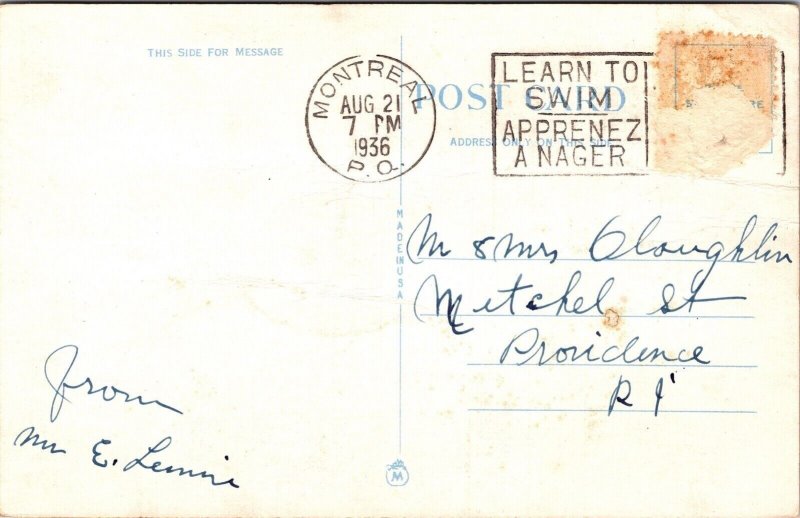 THIS SIDE FOR MESSAGE
MONTREAL
AUG 21
7 PM
1936
P.Q.
LEARN TO
SWIM
APPRENEZ
A NAGER
POST CARD
ADDRESS ONLY ON THIS SIDE
MADE IN USA
M & Mrs Oloughlin
Mitchel St
Providence
R I
From
Mr E. Lemire
M